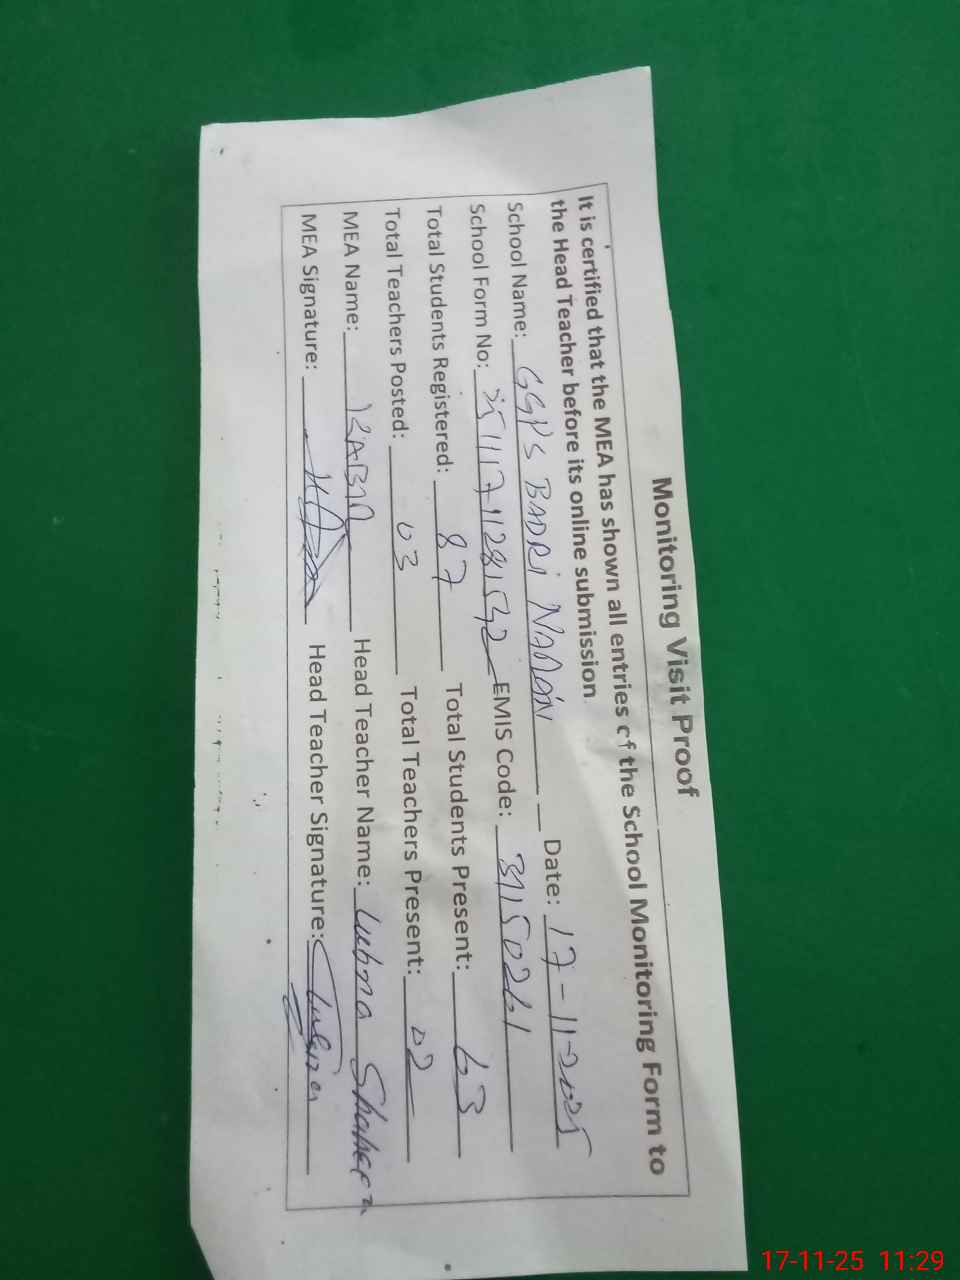 Monitoring Visit Proof
It is certified that the MEA has shown all entries of the School Monitoring Form to
the Head Teacher before its online submission
School Name: GGPS BADRI NARAIN Date: 17-11-2025
School Form No: EMIS Code: 31150261
Total Students Registered: 87 Total Students Present: 63
Total Teachers Posted: 03 Total Teachers Present: 02
MEA Name: Head Teacher Name: Lubna Shaheen
MEA Signature: Head Teacher Signature: Lubna
17-11-25 11:29